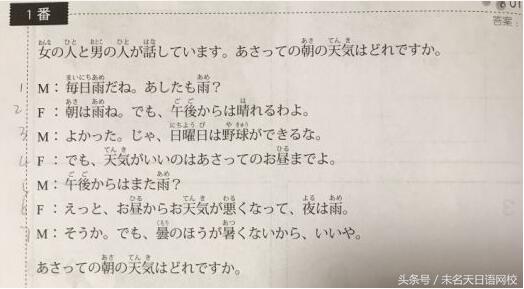 1番
答案
女の人と男の人が話しています。あさっての朝の天気はどれですか。
1 M：毎日雨だね。あしたも雨？
2 F：朝は雨ね。でも、午後からは晴れるわよ。
3 M：よかった。じゃ、日曜日は野球ができるな。
4 F：でも、天気がいいのはあさってのお昼までよ。
M：午後からはまた雨？
6 F：えっと、お昼からお天気が悪くなって、夜は雨。
7 M：そうか。でも、曇のほうが暑くないから、いいや。
あさっての朝の天気はどれですか。
头条号／未名天日语网校